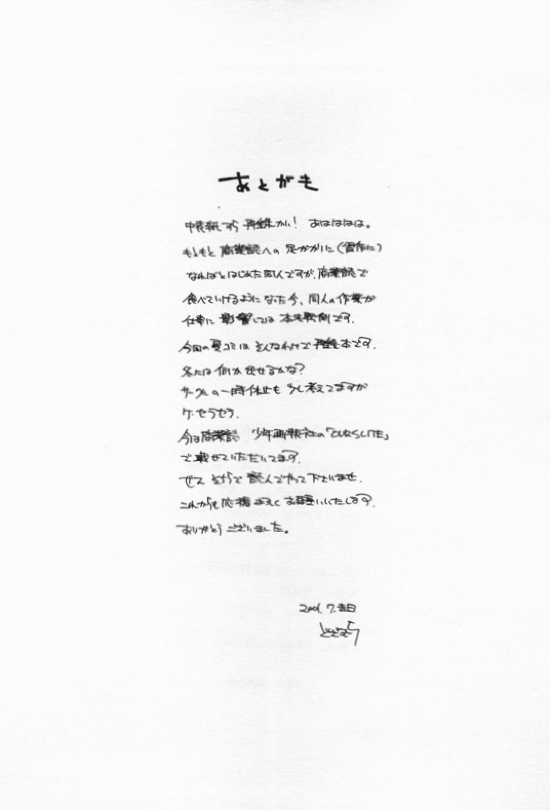 あとがき
中表紙すら再録かい! あはははは。
もともと商業誌への足がかりに(習作に)
なればとはじめた同人ですが、商業誌で
食べていけるようになった今、同人の作業が
仕事に影響しては本末転倒です.
今回の夏コミはそんなわけで再録本です.
冬には何か出せるかな?
サークルの一時休止も少し考えてますが
ケ・セラセラ.
今は商業誌 少年画報社の「OURSLITE」
で載せていただいてます.
ぜひ そちらで読んでやって下さいませ.
これからも応援よろしくお願いいたします.
ありがとうございました。
2001. 7. 吉日